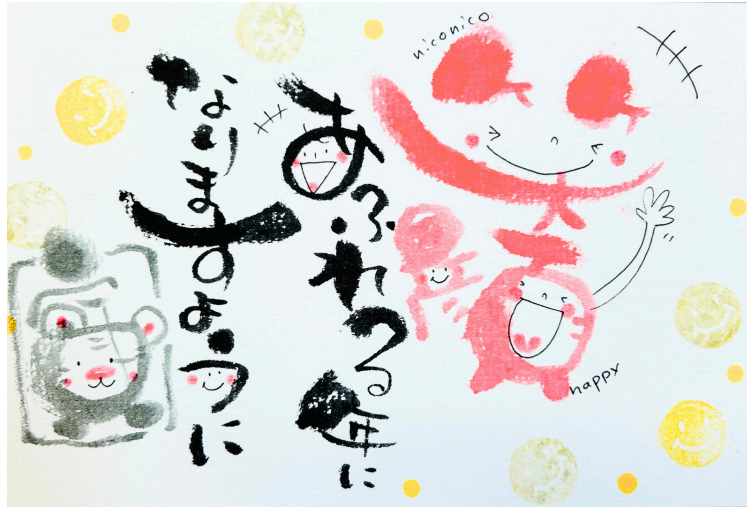 niconico
笑顔
happy
あふれる年に
なりますように